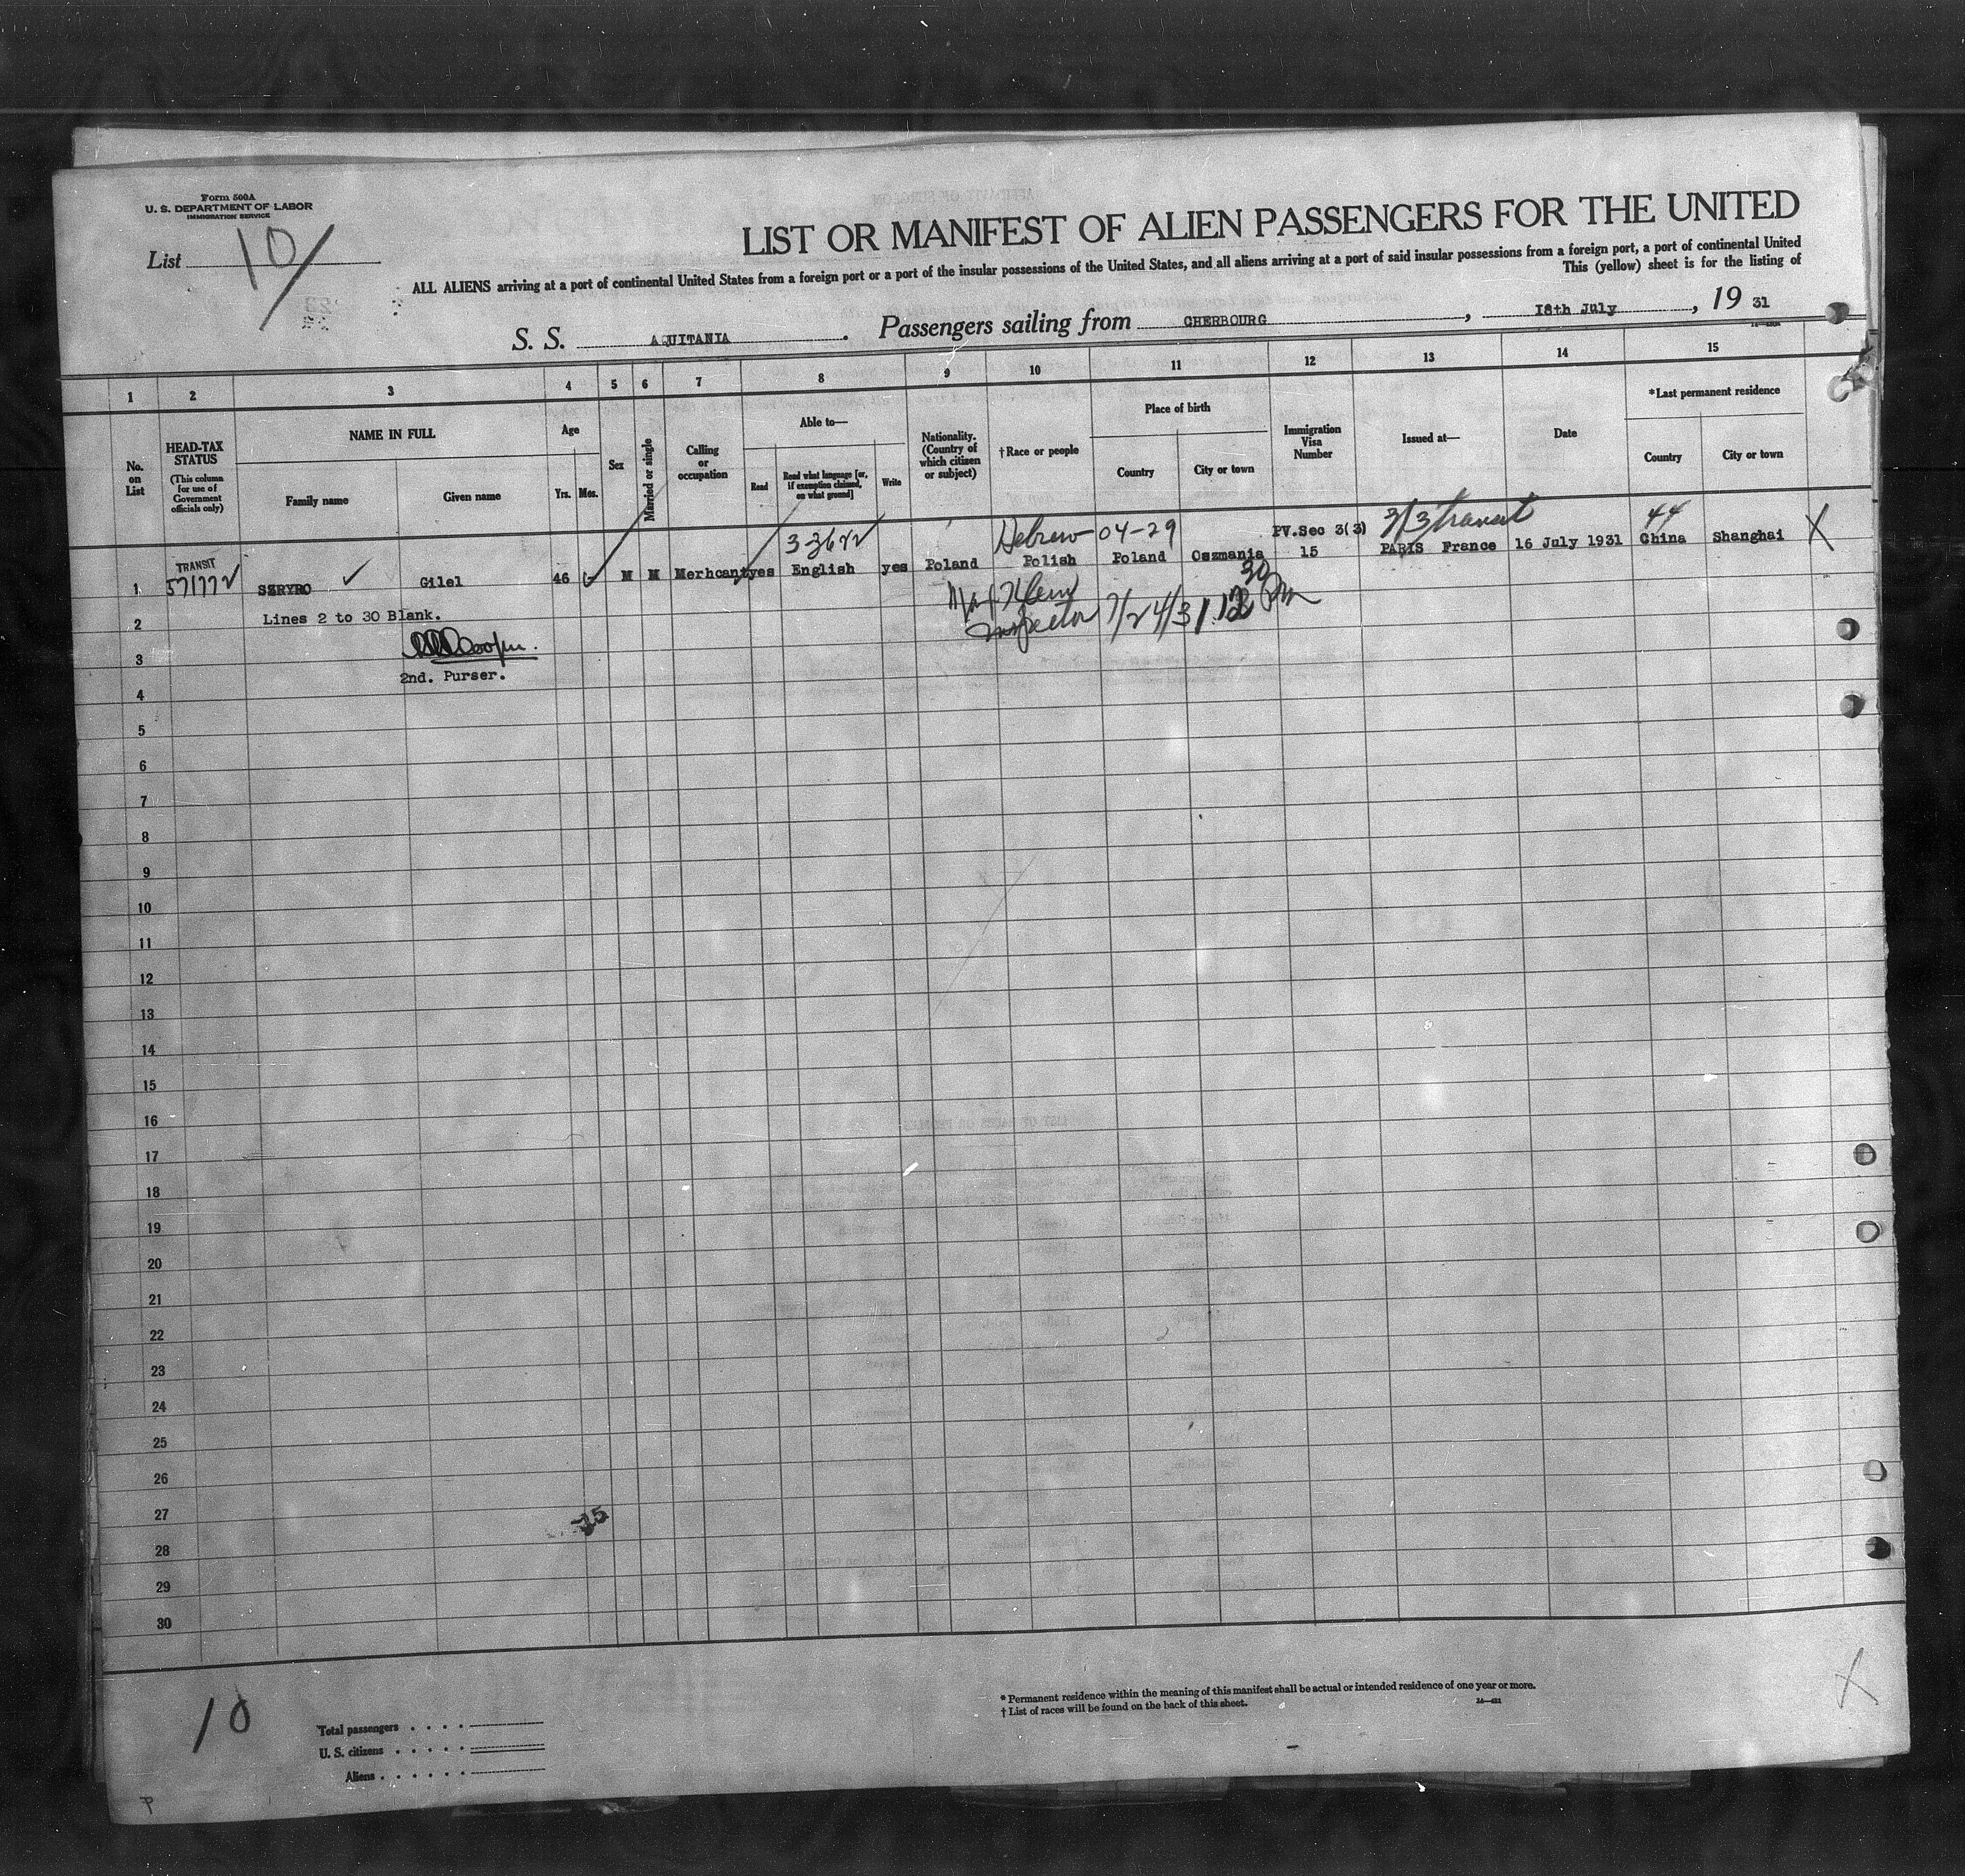 Form 500A
U. S. DEPARTMENT OF LABOR
IMMIGRATION SERVICE
List 10
LIST OR MANIFEST OF ALIEN PASSENGERS FOR THE UNITED
ALL ALIENS arriving at a port of continental United States from a foreign port or a port of the insular possessions of the United States, and all aliens arriving at a port of said insular possessions from a foreign port, a port of continental United
This (yellow) sheet is for the listing of
S. S. AQUITANIA. Passengers sailing from CHERBOURG, 18th July, 19 31
1 2 3 4 5 6 7 8 9 10 11 12 13 14 15
No. on List
HEAD-TAX STATUS
(This column for use of Government officials only)
NAME IN FULL
Family name
Given name
Age
Yrs. Mos.
Sex
Married or single
Calling or occupation
Able to—
Read
Read what language [or, if exemption claimed, on what ground]
Write
Nationality. (Country of which citizen or subject)
†Race or people
Place of birth
Country
City or town
Immigration Visa Number
Issued at—
Date
*Last permanent residence
Country
City or town
3/3 transit
44
Hebrew 04-29
PV.Sec 3(3)
TRANSIT
1 SZRYRO Gilel 46 M M Merhcant yes English yes Poland Polish Poland Oszmania 15 PARIS France 16 July 1931 China Shanghai X
2 Lines 2 to 30 Blank.
Inspector 7/24/31
3
2nd. Purser.
4
5
6
7
8
9
10
11
12
13
14
15
16
17
18
19
20
21
22
23
24
25
26
27
28
29
30
10
Total passengers
U. S. citizens
Aliens
* Permanent residence within the meaning of this manifest shall be actual or intended residence of one year or more.
† List of races will be found on the back of this sheet.
X